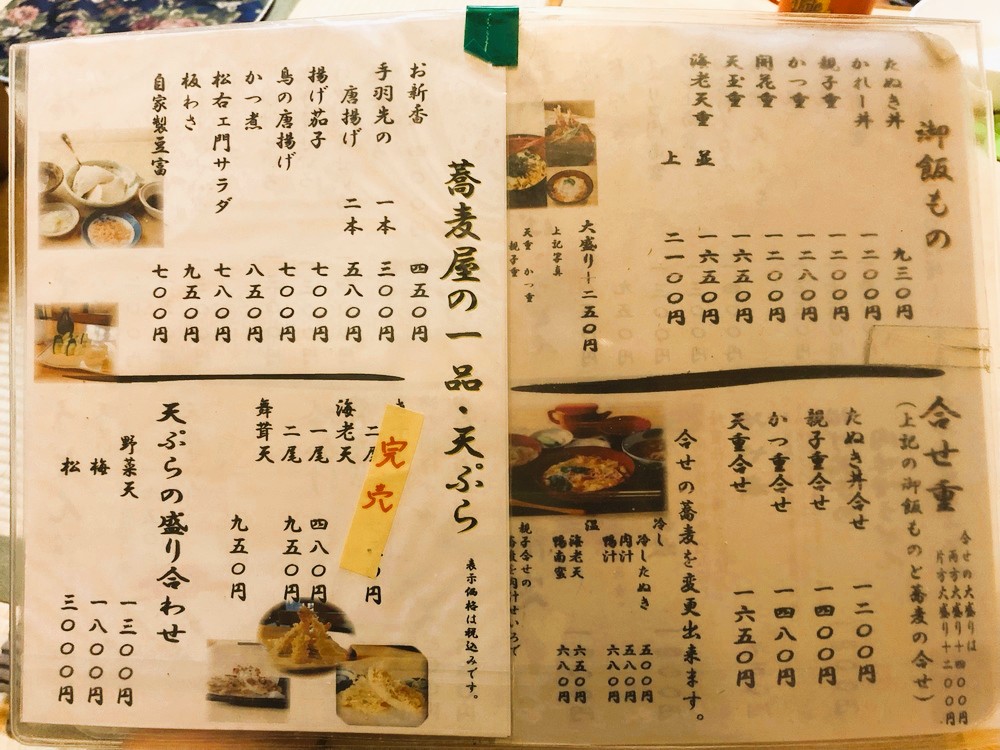 御飯もの
たぬき丼 九三〇円
かれー丼 一二〇〇円
親子重 一二〇〇円
かつ重 一二八〇円
開花重 一二〇〇円
天玉重 一六五〇円
海老天重 並 一六五〇円
上 二一〇〇円
大盛り+二五〇円
上記写真
天重 かつ重
親子重
合せ重
(上記の御飯ものと蕎麦の合せ)
合せの大盛りは
両方大盛り+四〇〇円
片方大盛り+二〇〇円
たぬき丼合せ 一二〇〇円
親子重合せ 一四〇〇円
かつ重合せ 一四八〇円
天重合せ 一六五〇円
合せの蕎麦を変更出来ます。
冷し
冷したぬき 五〇〇円
肉汁 五八〇円
鴨汁 六八〇円
温
海老天 六五〇円
鴨南蛮 六八〇円
親子合せの
蕎麦屋の一品・天ぷら
表示価格は税込みです。
お新香 四五〇円
手羽先の 一本 三〇〇円
唐揚げ 二本 五八〇円
揚げ茄子 七〇〇円
鳥の唐揚げ 七〇〇円
かつ煮 八五〇円
松右ェ門サラダ 七八〇円
板わさ 九五〇円
自家製豆富 七〇〇円
完売
二尾 円
海老天 一尾 四八〇円
二尾 九五〇円
舞茸天 九五〇円
天ぷらの盛り合わせ
野菜天 一三〇〇円
梅 一八〇〇円
松 三〇〇〇円